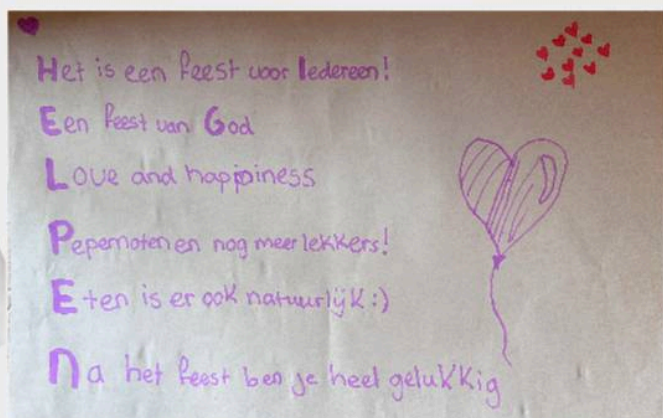 Het is een feest voor Iedereen!
Een feest van God
Love and happiness
Pepernoten en nog meer lekkers!
Eten is er ook natuurlijk :)
Na het feest ben je heel gelukkig